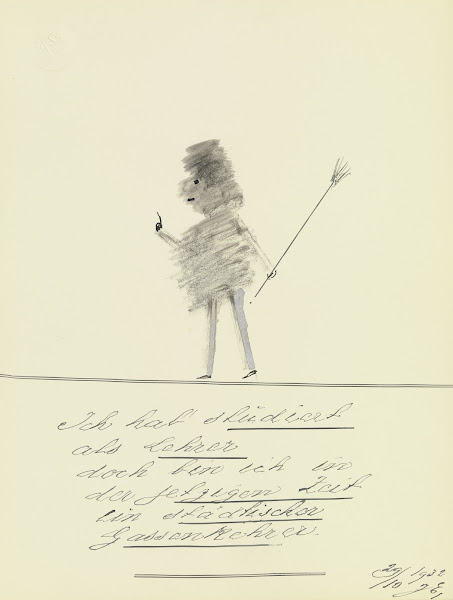 Ich hab stŭdiert
als Lehrer
doch bin ich in
der jetzigen Zeit
ein städtischer
Gassenkehrer.
29/10 1932